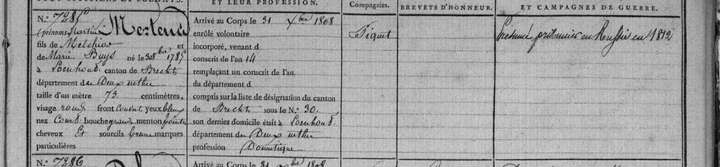 ET LEUR PROFESSION.
Compagnies.
BREVETS D'HONNEUR.
ET CAMPAGNES DE GUERRE.
N.° 7285
(prénoms) Martin Mertens
fils de Melchior et
de Marie Buys né le 1785
à Loenhout canton de Brecht
département des Deux nèthes
taille d'un mètre 73 centimètres,
visage rond front couvert yeux bleus
nez court bouche grande menton pointu
cheveux Et sourcils bruns marques
particulières
Arrivé au Corps le 31 Xbre 1808
enrôlé volontaire
incorporé, venant d
conscrit de l'an 14
remplaçant un conscrit de l'an
du département d
compris sur la liste de désignation du canton
de Brecht sous le N.° 30.
son dernier domicile était à Loenhout
département des Deux nèthes
profession Domestique
Piquet
Présumé prisonnier en Russie en 1812
N.° 7286
Arrivé au Corps le 31 Xbre 1808